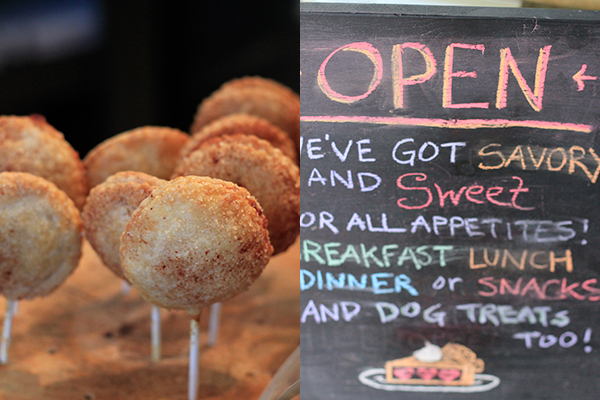 OPEN ←
WE'VE GOT SAVORY
AND Sweet
FOR ALL APPETITES!
BREAKFAST LUNCH
DINNER or SNACKS
AND DOG TREATS
TOO!